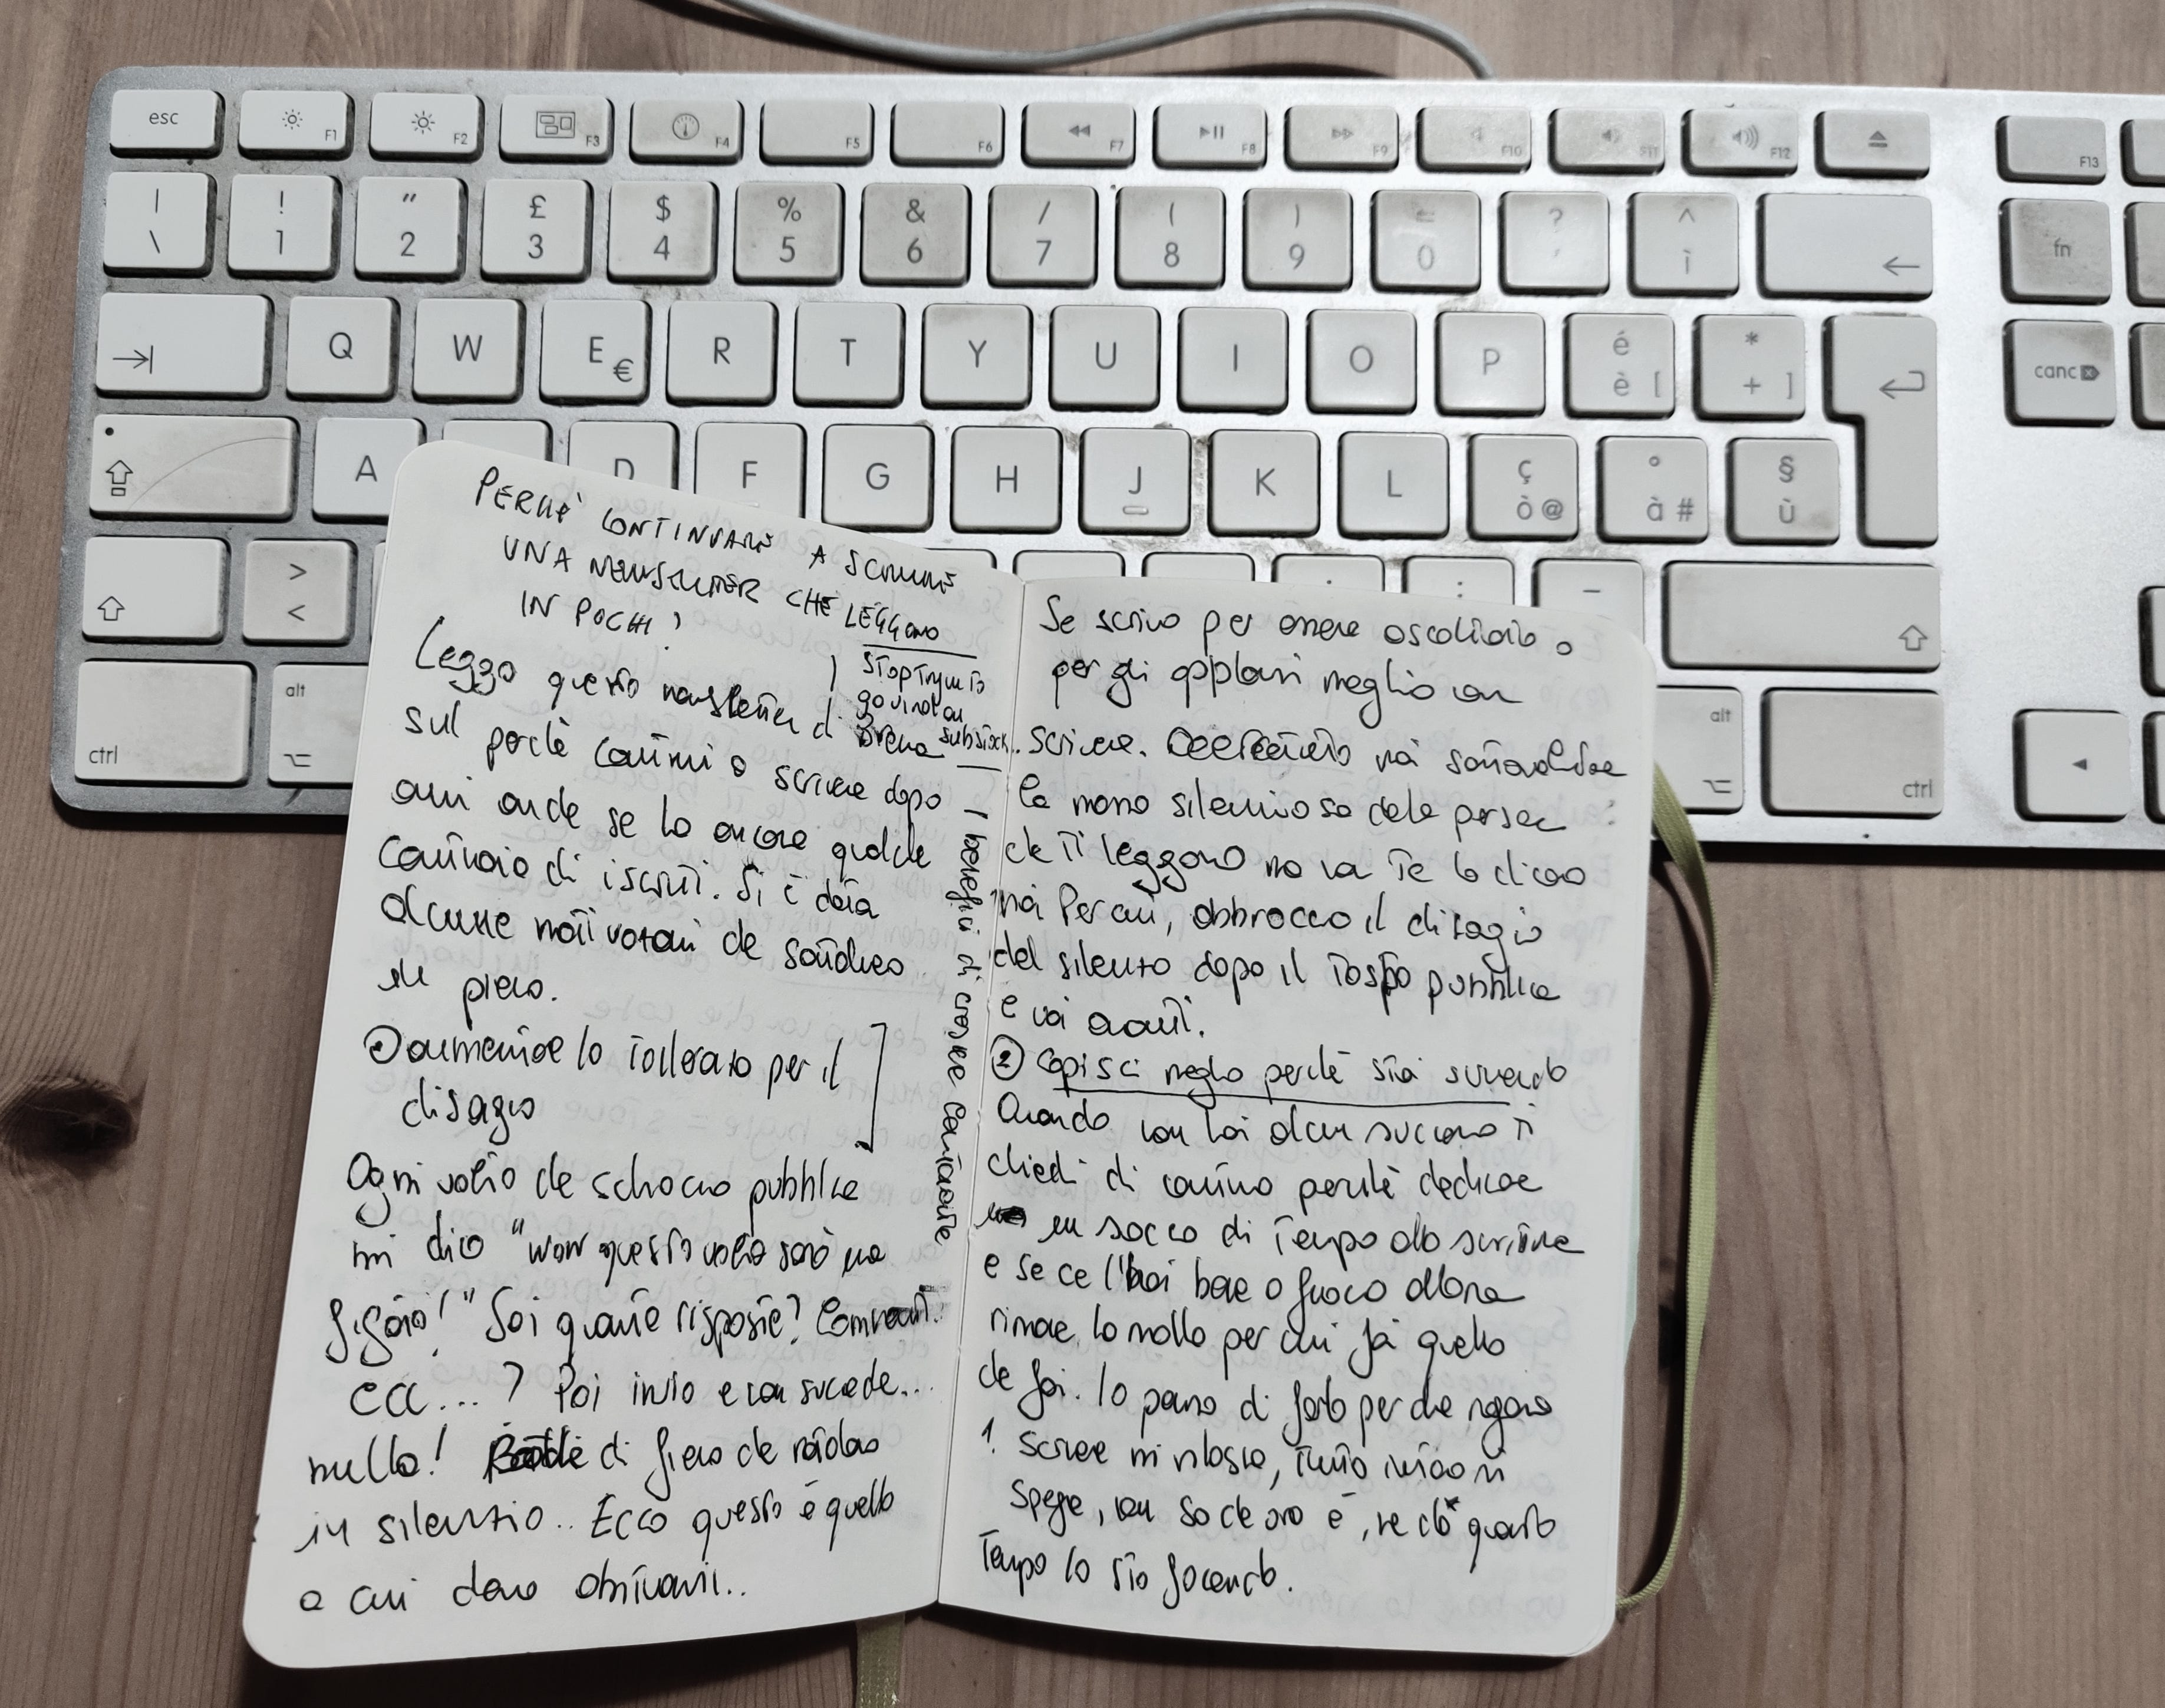 esc
F1
F2
F3
F4
F5
F6
F7
F8
F9
F10
F11
F12
F13
| ! " £ $ % & / ( ) = ? ^
\ 1 2 3 4 5 6 7 8 9 0 ' ì
fn
Q W E € R T Y U I O P é è [ * + ]
canc
A D F G H J K L ç ò @ ° à # § ù
> <
ctrl alt
alt ctrl
PERCHÈ CONTINUARE A SCRIVERE
UNA NEWSLETTER CHE LEGGONO
IN POCHI?
Leggo questa newsletter di
substack
sul perchè continui a scrivere dopo
anni anche se ha ancora qualche
centinaio di iscritti. Si è data
alcune motivazioni che condivido
in pieno.
① Aumentare la tolleranza per il
disagio
I benefici di creare contenuti
Ogni volta che schiaccio pubblica
mi dico "wow questa volta sarà una
figata!" Sai quante risposte? Commenti
ecc...? Poi invio e non succede...
nulla! di fieno che rotolano
in silenzio.. Ecco questo è quello
a cui devo abituarmi..
Se scrivo per essere ascoltato o
per gli applausi meglio non
scrivere. mai sottovalutare
la massa silenziosa delle persone
che ti leggono ma non te lo dicono
mai Per cui, abbraccio il disagio
del silenzio dopo il tasto pubblica
e vai avanti.
② Capisci meglio perchè stai scrivendo
Quando non hai alcun successo ti
chiedi di continuo perchè dedicare
un sacco di tempo alla scrittura
e se ce l'hai bene a fuoco allora
rimane la molla per cui fai quello
che fai. Io penso di farlo perchè
Scrivere mi rilassa, tutto intorno si
spegne, non so che ora è, nè da quanto
tempo lo sto facendo.